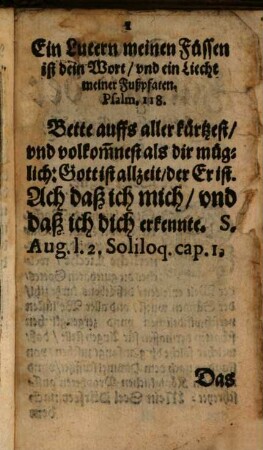 1
Ein Lucern meinen Füssen
ist dein Wort / vnd ein Liecht
meiner Fußpfaten.
Psalm. 118.
Bette auffs aller kürtzest /
vnd volkom̃nest als dir müg-
lich: Gott ist allzeit / der Er ist.
Ach daß ich mich / vnd
daß ich dich erkennte. S.
Aug. l. 2. Soliloq. cap. 1.
Das